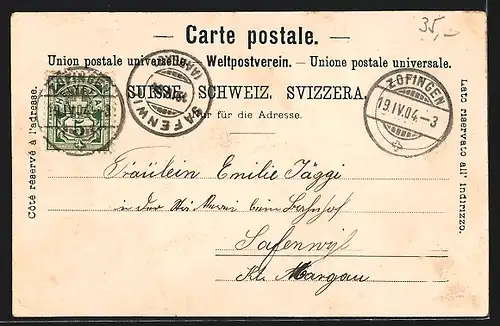 35,-
— Carte postale. —
Union postale universelle. Weltpostverein. - Unione postale universale.
SUISSE. SCHWEIZ. SVIZZERA.
Nur für die Adresse.
Côté réservé à l'adresse.
Lato riservato all' indirizzo.
ZOFINGEN
5
SAFENWIL
ZOFINGEN
19.IV.04.-3
Fräulein Emilie Jäggi
in der beim Bahnhof
Safenwyl
Kt. Aargau